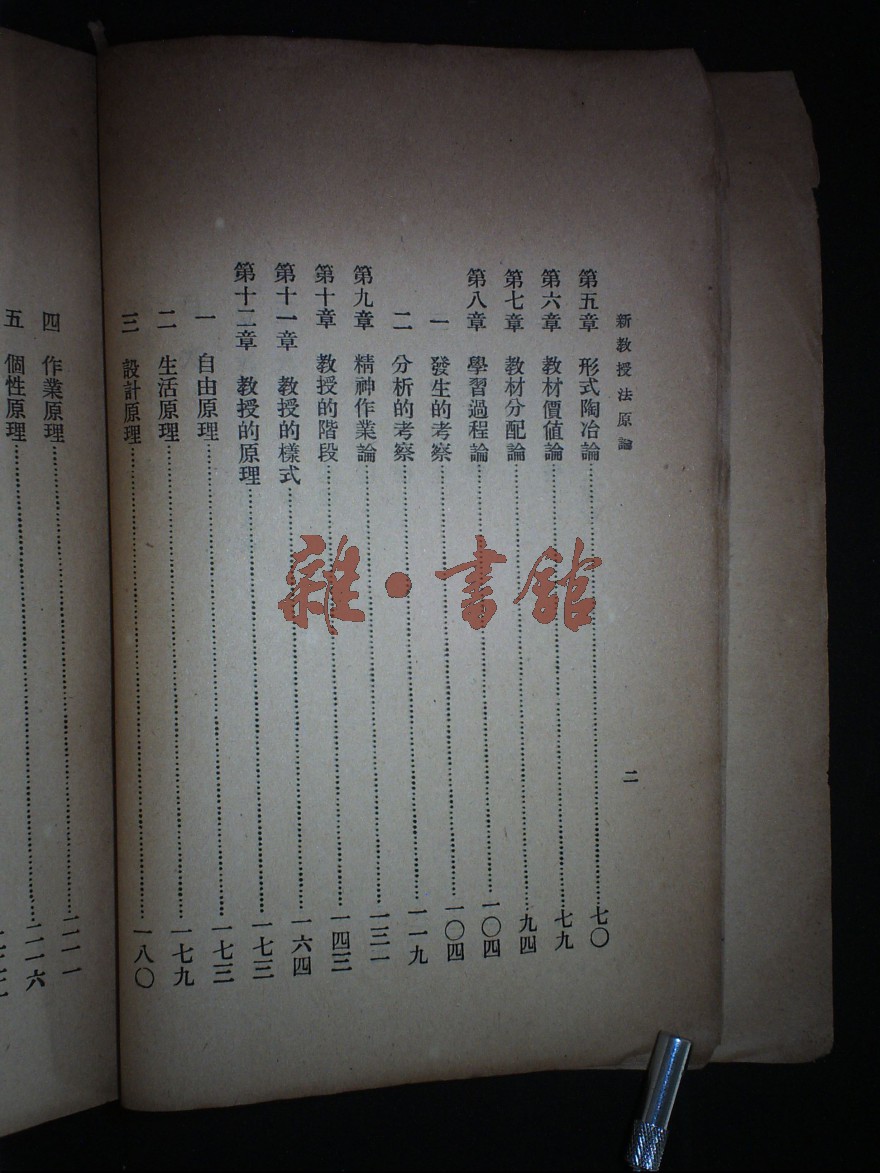 新教授法原論
二
第五章 形式陶冶論……七〇
第六章 教材價値論……七九
第七章 教材分配論……九四
第八章 學習過程論……一〇四
一 發生的考察……一〇四
二 分析的考察……一一九
第九章 精神作業論……一三一
第十章 教授的階段……一四三
第十一章 教授的樣式……一六四
第十二章 教授的原理……一七三
一 自由原理……一七三
二 生活原理……一七九
三 設計原理……一八〇
四 作業原理……二一一
五 個性原理……二一六
雜·書館